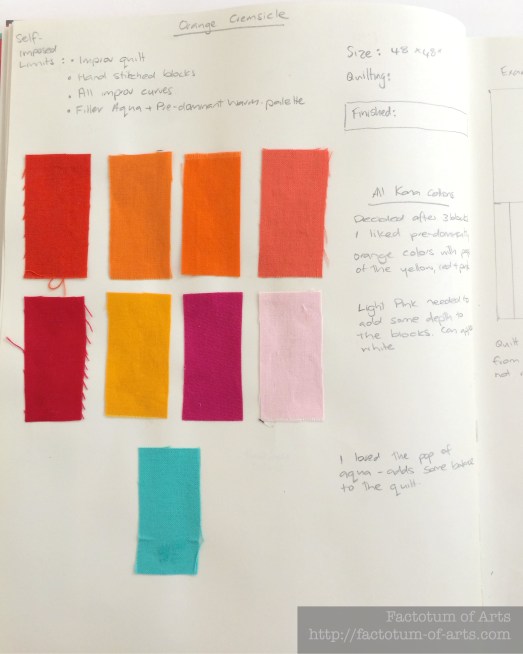 Orange Cremsicle
Self-
imposed
Limits : • Improv quilt
• Hand stitched blocks
• All improv curves
• Filler Aqua + Pre-dominant warm palette
Size : 48" x 48"
Quilting:
Finished:
All Kona Colors
Decided after 3 blocks
I liked pre-dominantly
orange colors with pop
of the yellow, red + pink
Light Pink needed to
add some depth to
the blocks. Can
white
I loved the pop of
aqua - adds some
to the quilt.
Quilt
from
not
Factotum of Arts
http://factotum-of-arts.com